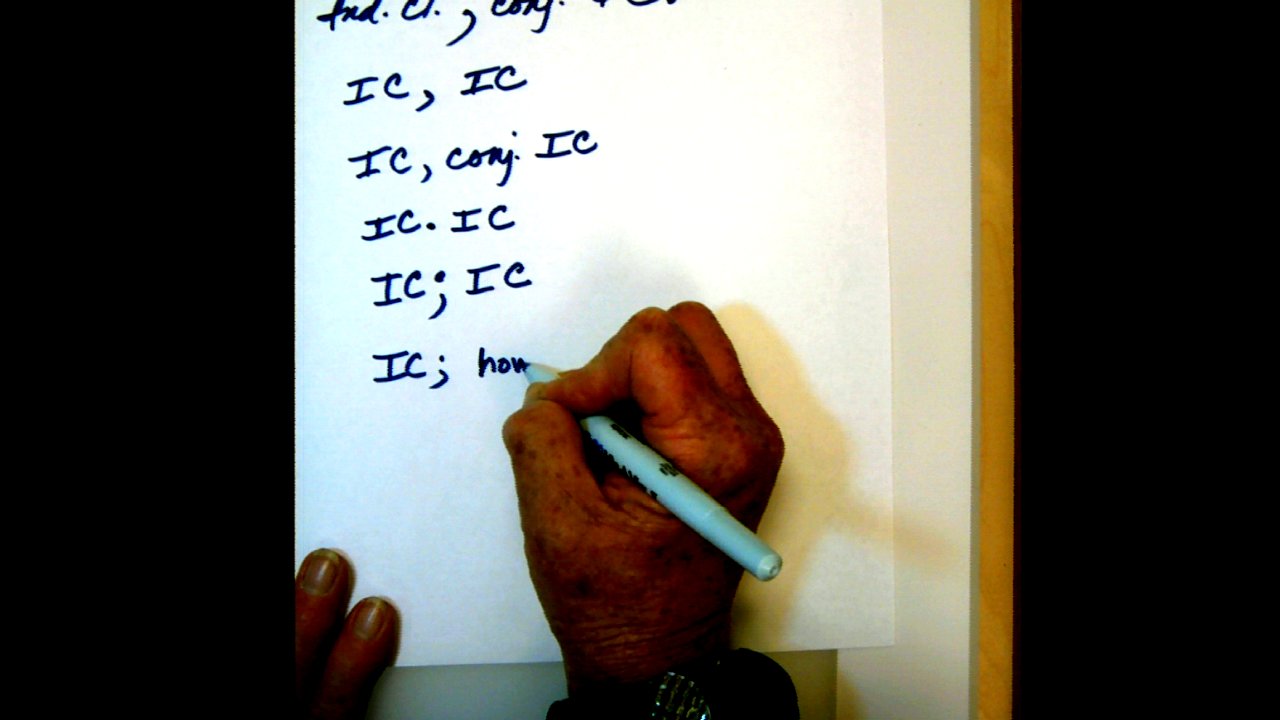 Ind. Cl. , conj.
IC, IC
IC, conj. IC
IC. IC
IC; IC
IC; how